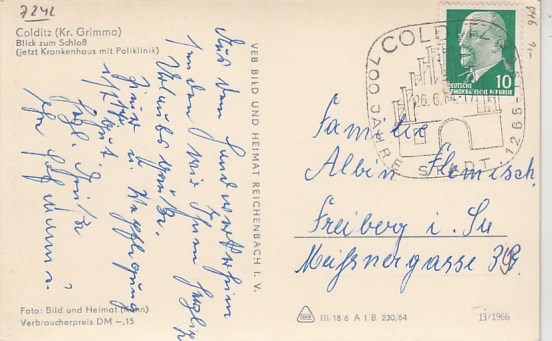 7242
Colditz (Kr. Grimma)
Blick zum Schloß
(jetzt Krankenhaus mit Poliklinik)
Aus dem Handwerkerheim
senden wir Ihnen herzliche
Urlaubsgrüße.
u. Verpflegung
ist gut.
Foto: Bild und Heimat
Verbraucherpreis DM -,15
VEB BILD UND HEIMAT REICHENBACH I. V.
COLDITZ
700 JAHRE STADT 1265
26.6.
DEUTSCHE
DEMOKRATISCHE REPUBLIK
10
Familie
Albin Flemisch
Freiberg i. Sa
Meißnergasse 39
III 18 6 A 1 B 230/64
13/1966